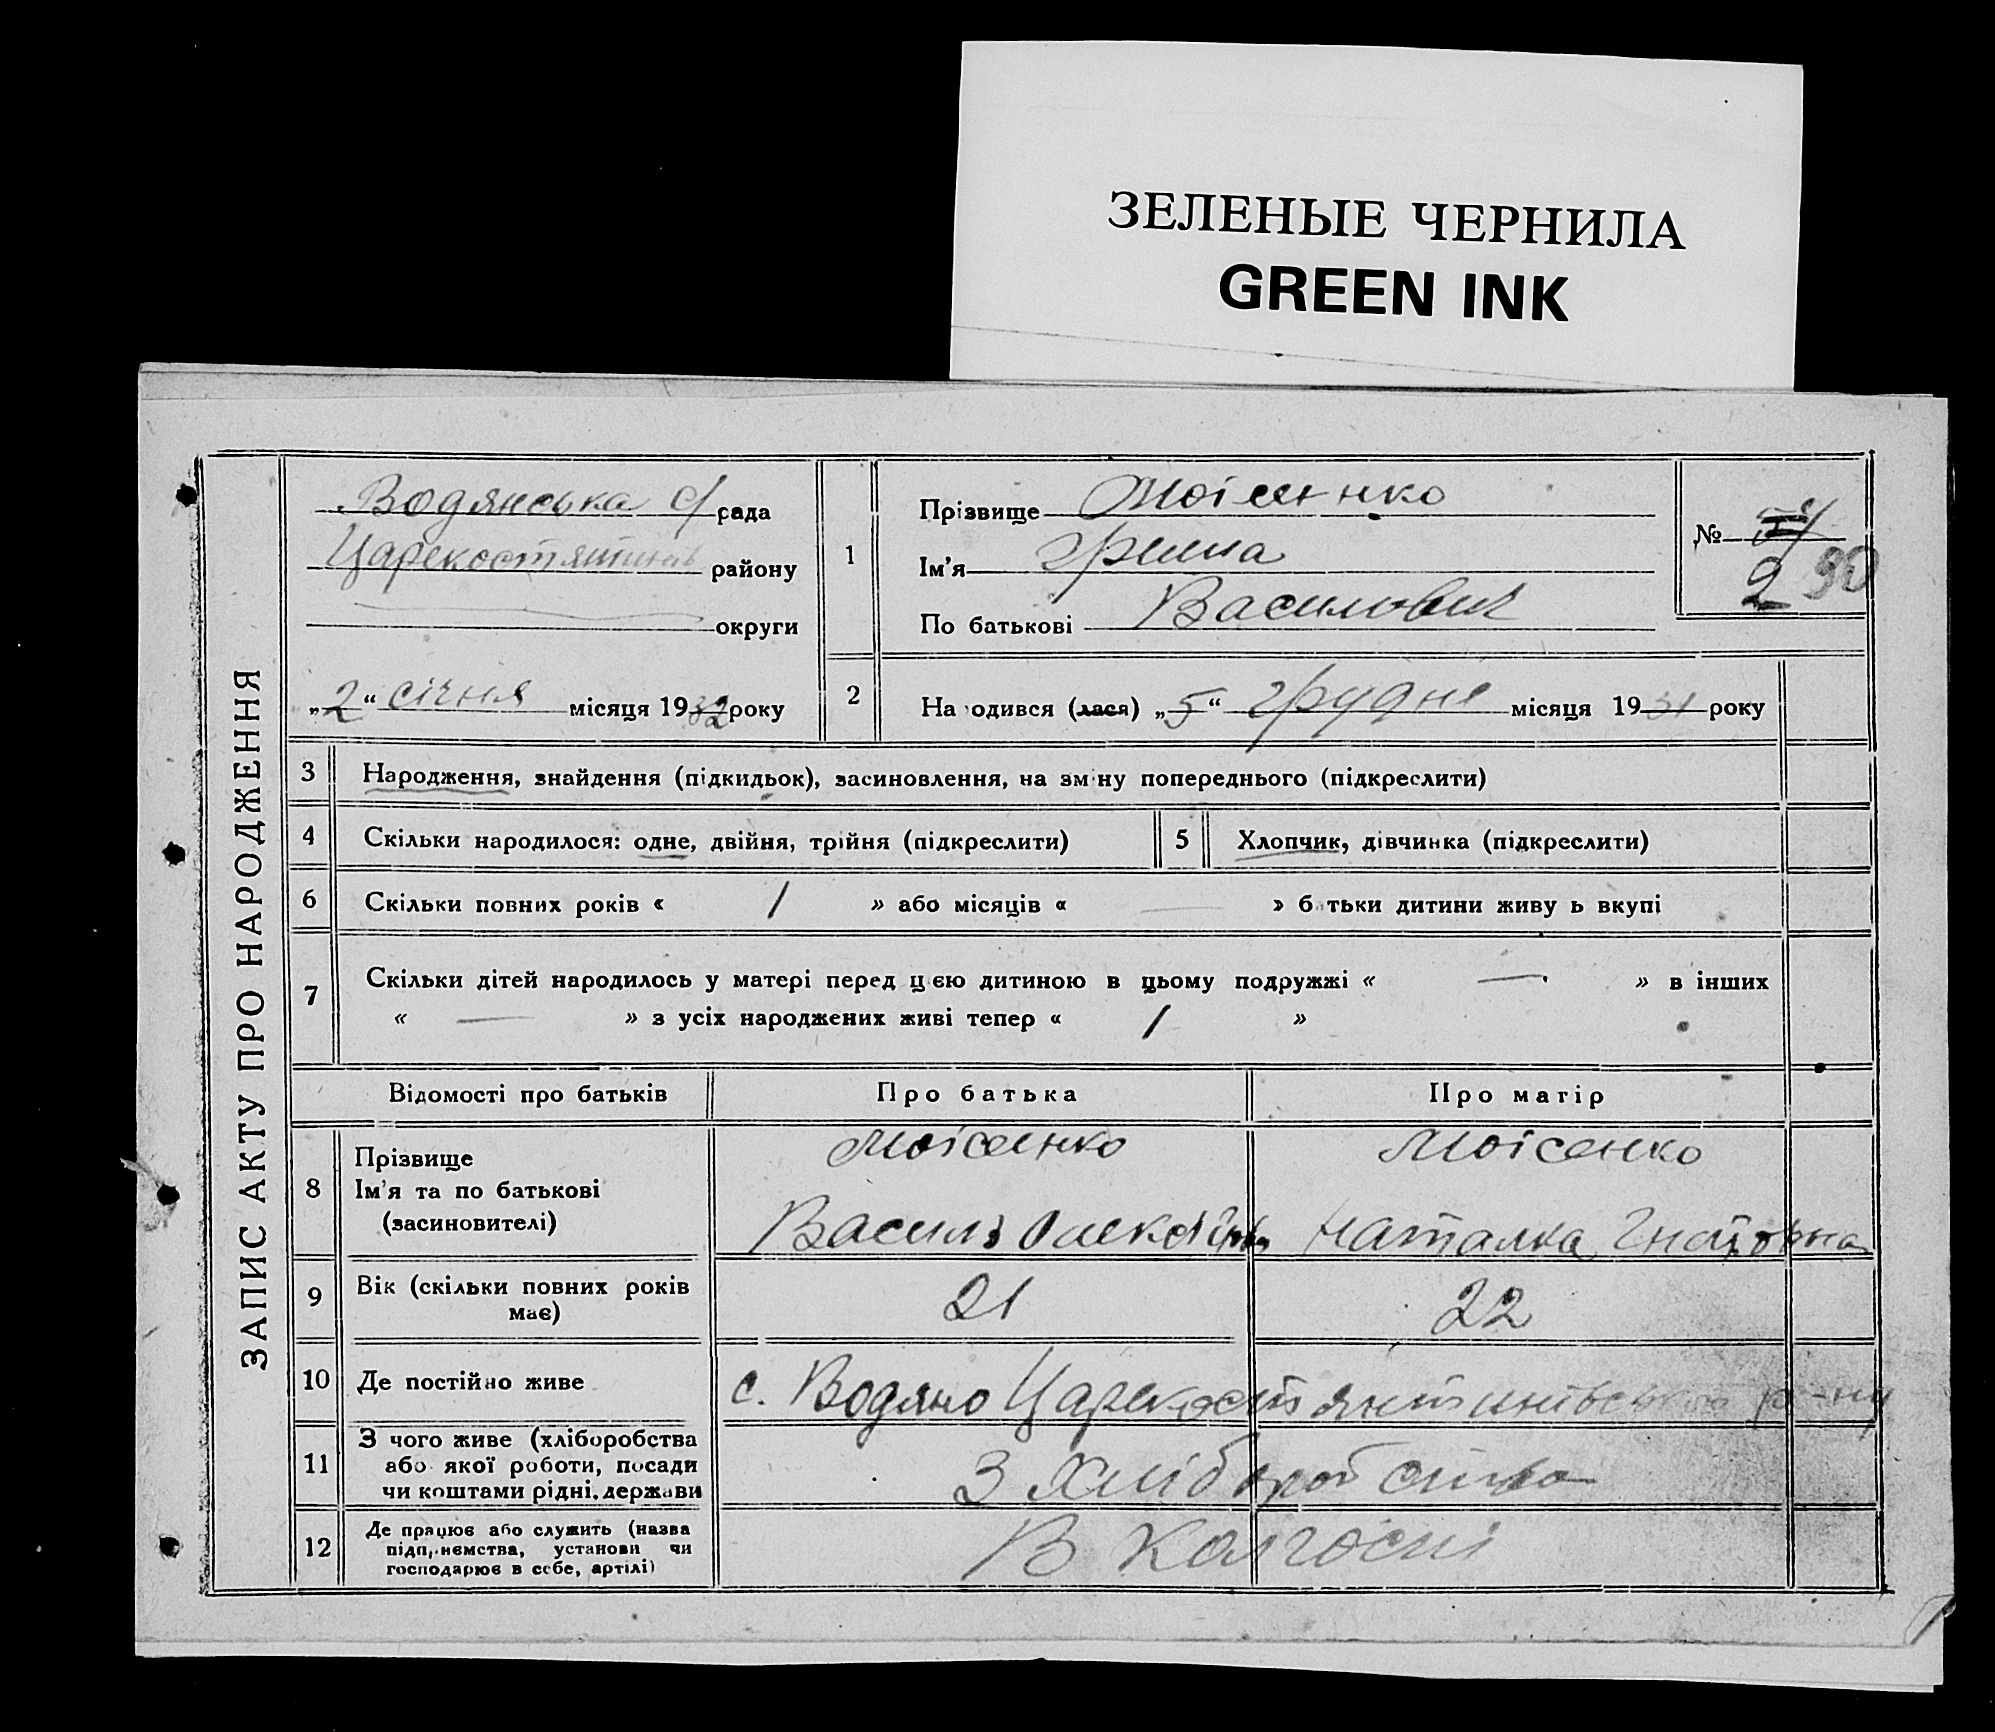 ЗЕЛЕНЫЕ ЧЕРНИЛА
GREEN INK
ЗАПИС АКТУ ПРО НАРОДЖЕННЯ
Водянська с/рада
району
округи
„2“ січня місяця 1932 року
1
Прізвище Моісенко
Ім'я
По батькові Василович
№
2 90
2 На одився (лася) „5“ грудня місяця 1931 року
3 Народження, знайдення (підкидьок), засиновлення, на зм ну попереднього (підкреслити)
4 Скільки народилося: одне, двійня, трійня (підкреслити) 5 Хлопчик, дівчинка (підкреслити)
6 Скільки повних років « 1 » або місяців « — » б тьки дитини живу ь вкупі
7 Скільки дітей народилось у матері перед цією дитиною в цьому подружжі « — » в інших
« — » з усіх народжених живі тепер « 1 »
Відомості про батьків Про батька Про матір
8 Прізвище Моісенко Моісенко
Ім'я та по батькові
(засиновителі) Василь Наталка
9 Вік (скільки повних років має) 21 22
10 Де постійно живе с. Водяно Царекостянтинівського р-ну
11 З чого живе (хліборобства
або якої роботи, посади
чи коштами рідні, держави З хліборобства
12 Де працює або служить (назва
підприємства, установи чи
господарює в себе, артілі) В колгоспі